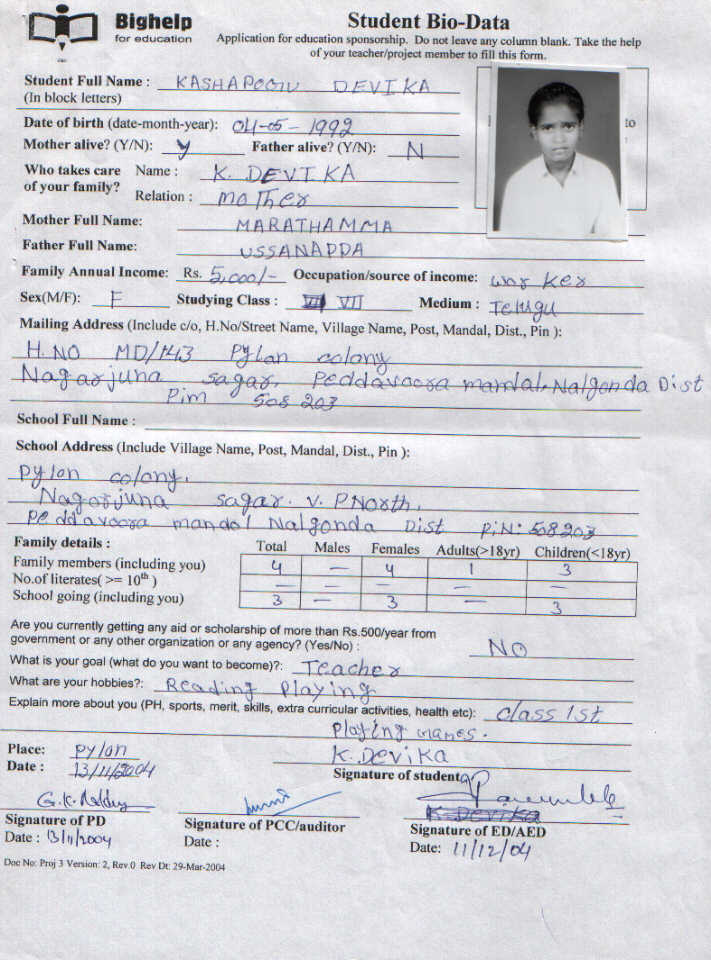 Bighelp
for education
Student Bio-Data
Application for education sponsorship. Do not leave any column blank. Take the help
of your teacher/project member to fill this form.
Student Full Name : KASHAPOGU DEVIKA
(In block letters)
Date of birth (date-month-year): 04-05-1992
to
Mother alive? (Y/N): y Father alive? (Y/N): N
Who takes care Name : K. DEVIKA
of your family?
Relation : mother
Mother Full Name: MARATHAMMA
Father Full Name: USSANAPDA
Family Annual Income: Rs. 5,000/- Occupation/source of income: wor ker
Sex(M/F): F Studying Class : VII VII Medium : Telugu
Mailing Address (Include c/o, H.No/Street Name, Village Name, Post, Mandal, Dist., Pin ):
H.NO MD/143 pylon colony
Nagarjuna sagar, peddavoora mandal. Nalgonda Dist
Pim 508 203
School Full Name :
School Address (Include Village Name, Post, Mandal, Dist., Pin ):
pylon colony,
Nagarjuna sagar. V. P North,
peddavoora mandal Nalgonda Dist PiN: 508203
Family details : Total Males Females Adults(>18yr) Children(<18yr)
Family members (including you) 4 — 4 1 3
No.of literates( >= 10th ) — — — — —
School going (including you) 3 — 3 — 3
Are you currently getting any aid or scholarship of more than Rs.500/year from
government or any other organization or any agency? (Yes/No) : NO
What is your goal (what do you want to become)?: Teacher
What are your hobbies?: Reading playing
Explain more about you (PH, sports, merit, skills, extra curricular activities, health etc): class 1st
playing games.
Place: pylon K. Devika
Date : 13/11/2004 Signature of student
G.K. Reddy K. DEVIKA
Signature of PD Signature of PCC/auditor Signature of ED/AED
Date : 13/11/2004 Date : Date: 11/12/04
Doc No: Proj 3 Version: 2, Rev.0 Rev Dt: 29-Mar-2004